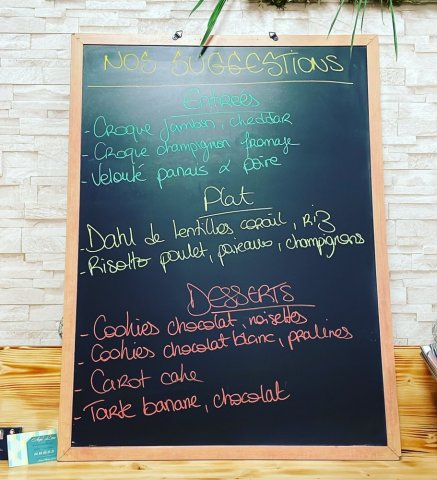 NOS SUGGESTIONS
Entrées
- Croque jambon, cheddar
- Croque champignon fromage
- Velouté panais & poire
Plat
- Dahl de lentilles corail, Riz
- Risotto poulet, poireaux, champignons
DESSERTS
- Cookies chocolat, noisettes
- Cookies chocolat blanc, pralines
- Carot cake
- Tarte banane, chocolat